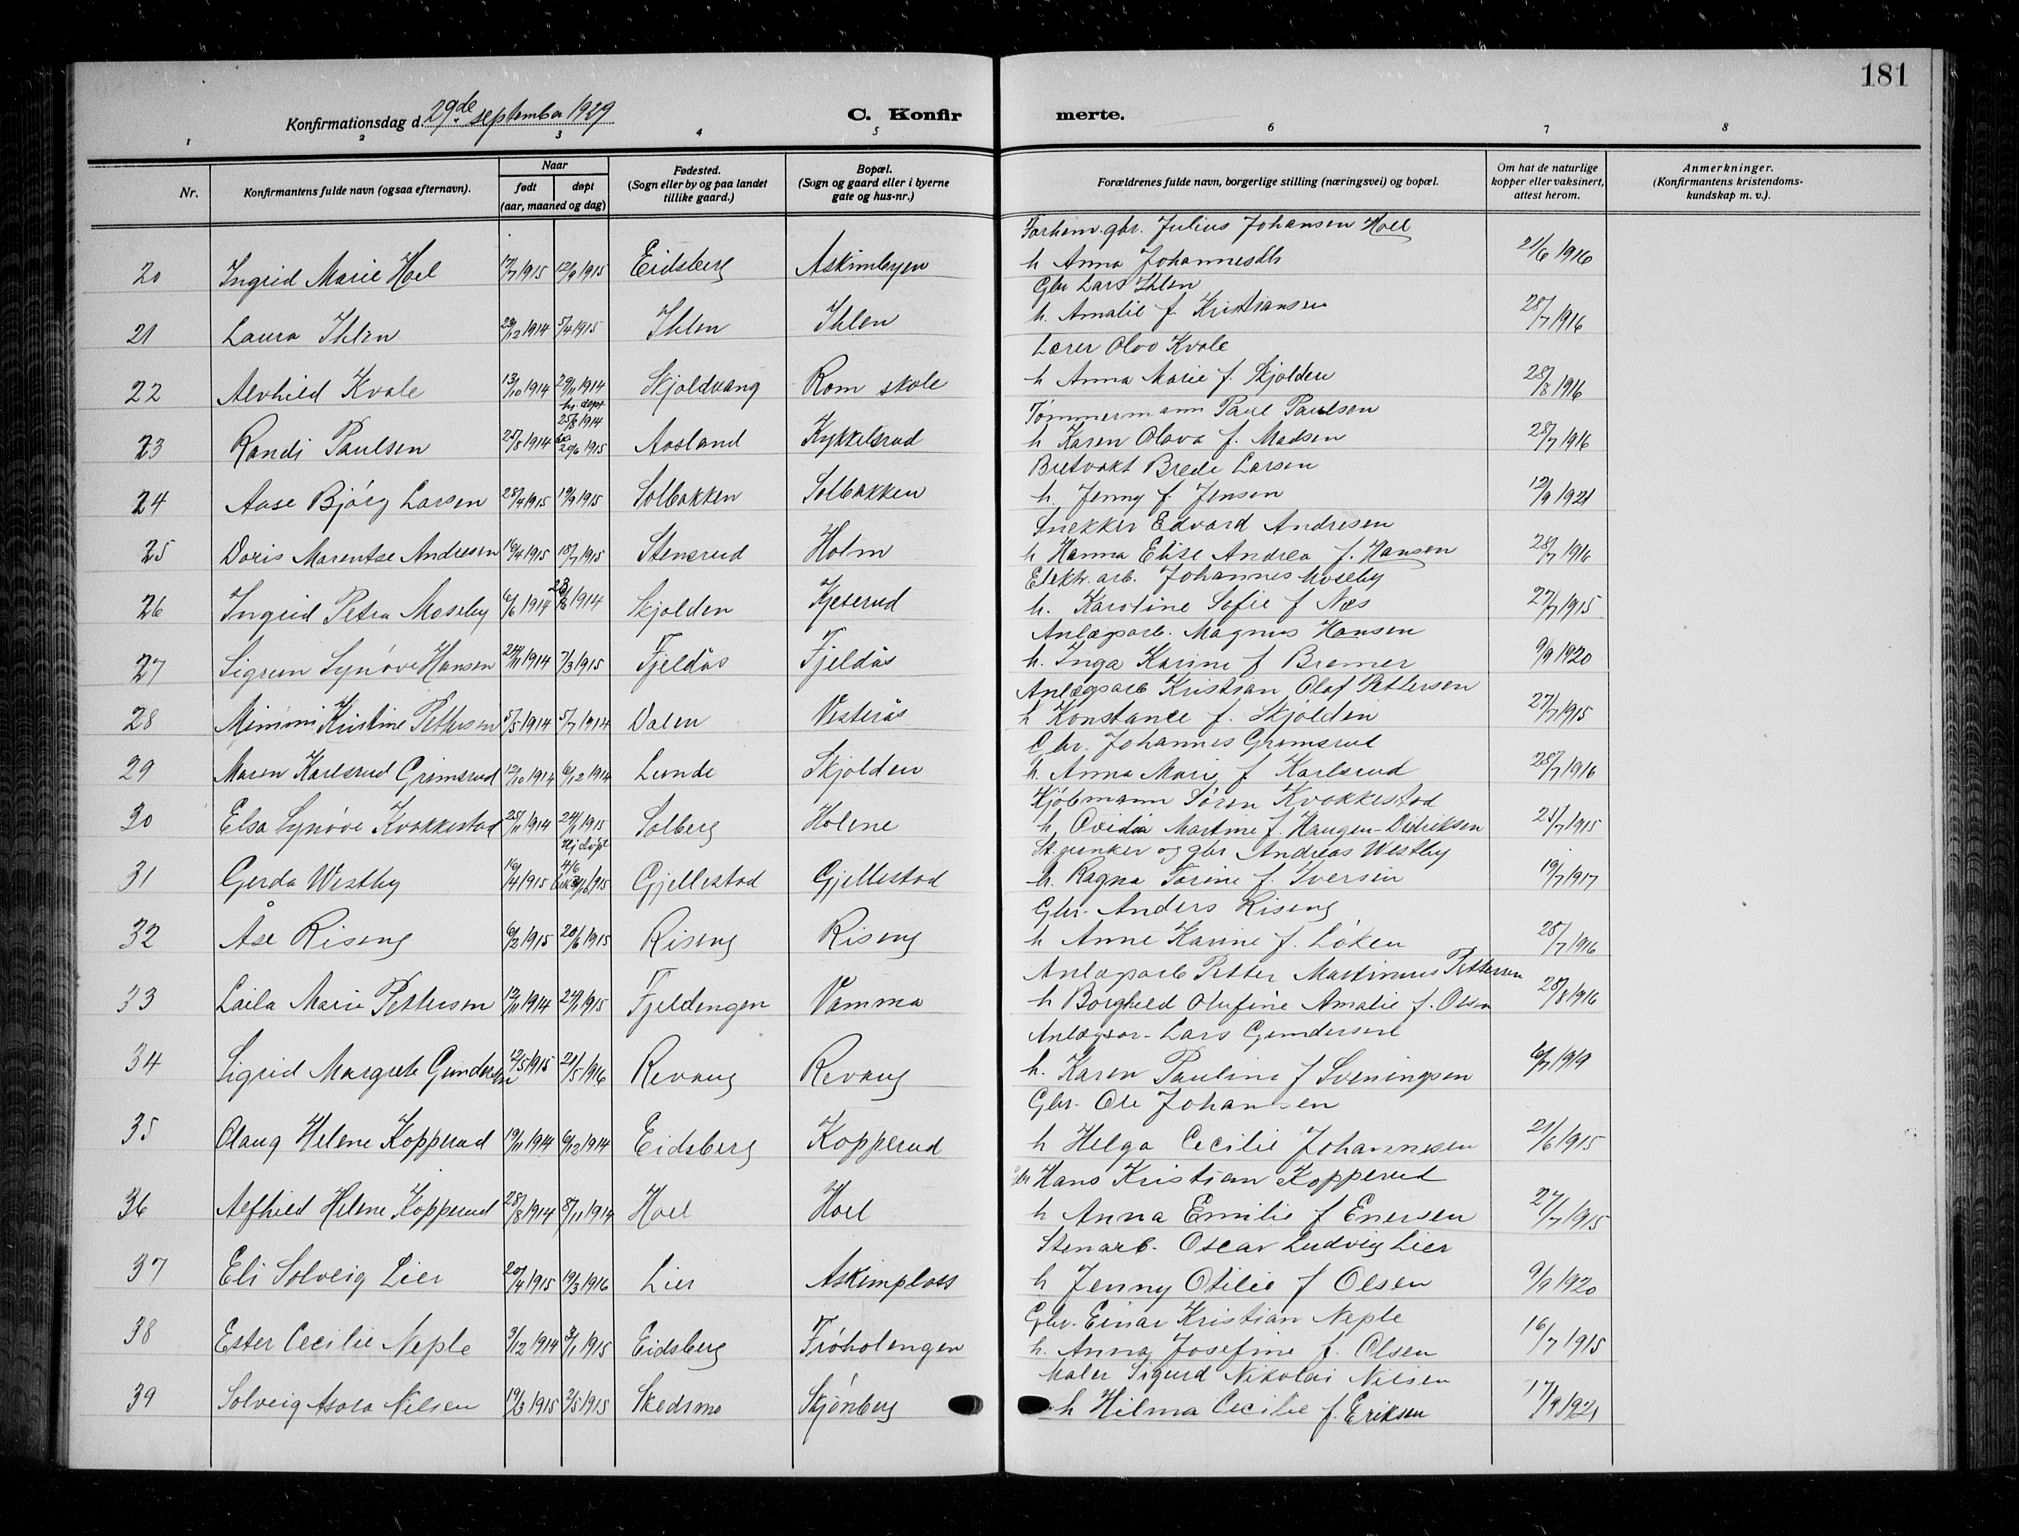 181
Konfirmationsdag d. 29de september 1929 C. Konfir merte.
1 2 3 4 5 6 7 8
Nr. Konfirmantens fulde navn (ogsaa efternavn). Naar født døpt (aar, maaned og dag) Fødested. (Sogn eller by og paa landet tillike gaard.) Bopæl. (Sogn og gaard eller i byerne gate og hus-nr.) Forældrenes fulde navn, borgerlige stilling (næringsvei) og bopæl. Om hat de naturlige kopper eller vaksinert, attest herom. Anmerkninger. (Konfirmantens kristendoms- kundskap m. v.).
Forhenv. gbr. Julius Johansen Hoel
20 Ingrid Marie Hoel 17/7 1915 12/9 1915 Eidsberg Askimbyen h Anna Johannesdh 21/6 1916
Gbr Lars Ihlen
21 Laura Ihlen 29/12 1914 5/4 1915 Ihlen Ihlen h. Amalie f. Kristiansen 28/7 1916
Lærer Olav Kvale
22 Alvhild Kvale 13/10 1914 29/11 1914 Skjoldvang Rom skole h Anna Marie f. Skjolden 28/8 1916
hj. døpt 25/8 1914
Tømmermann Paul Paulsen
23 Randi Paulsen 25/8 1914 20/6 1915 Aasland Kykkelsrud h Karen Olava f. Madsen 28/7 1916
Bretvakt Brede Larsen
24 Aase Bjørg Larsen 28/4 1915 19/9 1915 Solbakken Solbakken h. Jenny f. Jensen 12/9 1921
Snekker Edvard Andresen
25 Doris Marentse Andresen 16/4 1915 18/7 1915 Stensrud Holm h Hanna Elise Andrea f. Hansen 28/7 1916
Elektr. arb. Johannes Moseby
26 Ingrid Petra Moseby 6/6 1914 23/8 1914 Skjolden Kjeserud h. Karoline Sofie f Næs 27/7 1915
Anlægsarb. Magnus Hansen
27 Sigrun Synøve Hansen 24/11 1914 7/3 1915 Fjeldås Fjeldås h. Inga Karine f Bremer 9/9 1920
Anlægsarb Kristian Olaf Pettersen
28 Mimmi Kristine Pettersen 5/5 1914 5/7 1914 Dalen Vesterås h Konstance f. Skjolden 27/7 1915
Gbr. Johannes Grimsrud
29 Maren Karlsrud Grimsrud 12/10 1914 6/12 1914 Lunde Skjolden h. Anna Marie f Karlsrud 28/7 1916
Kjøbmann Søren Kvakkestad
30 Elsa Synøve Kvakkestad 25/11 1914 24/1 1915 Solberg Holene h. Ovidia Martine f. Haugen-Didriksen 21/7 1915
Hj døpt 4/6
St. penker og gbr Andreas Westby
31 Gerda Westby 16/4 1915 Gjellestad Gjellestad h. Ragna Torine f. Iversen 19/7 1917
Gbr. Anders Riseng
32 Åse Riseng 6/2 1915 20/6 1915 Riseng Riseng h Anne Karine f. Løken 28/7 1916
Anlægsarb Petter Martinius Pettersen
33 Laila Marie Pettersen 12/11 1914 24/1 1915 Fjeldengen Vamma h Borghild Olufine Amalie f. Olsen 28/8 1916
Anlægsar- Lars Gundersen
34 Sigrid Margrete Gundersen 12/5 1915 21/5 1916 Revaug Revaug h. Karen Pauline f Sveningsen 6/7 1919
Gbr. Ole Johansen
35 Olaug Helene Kopperud 19/11 1914 6/12 1914 Eidsberg Kopperud h Helga Cecilie Johannesen 21/6 1915
gbr Hans Kristian Kopperud
36 Alfhild Helene Kopperud 28/8 1914 8/11 1914 Hoel Hoel h Anna Emilie f Enersen 27/7 1915
Stenarb. Oscar Ludvig Lier
37 Eli Solveig Lier 20/4 1915 19/3 1916 Lier Askimplass h Jenny Otilie f Olsen 9/9 1920
Gbr. Einar Kristian Neple
38 Ester Cecilie Neple 3/12 1914 3/1 1915 Eidsberg Frøholengen h. Anna Josefine f. Olsen 16/7 1915
Maler Sigurd Nikolai Nilsen
39 Solveig Asora Nilsen 19/3 1915 2/5 1915 Skedsmo Skjønberg h Hilma Cecilie f. Eriksen 17/9 1921